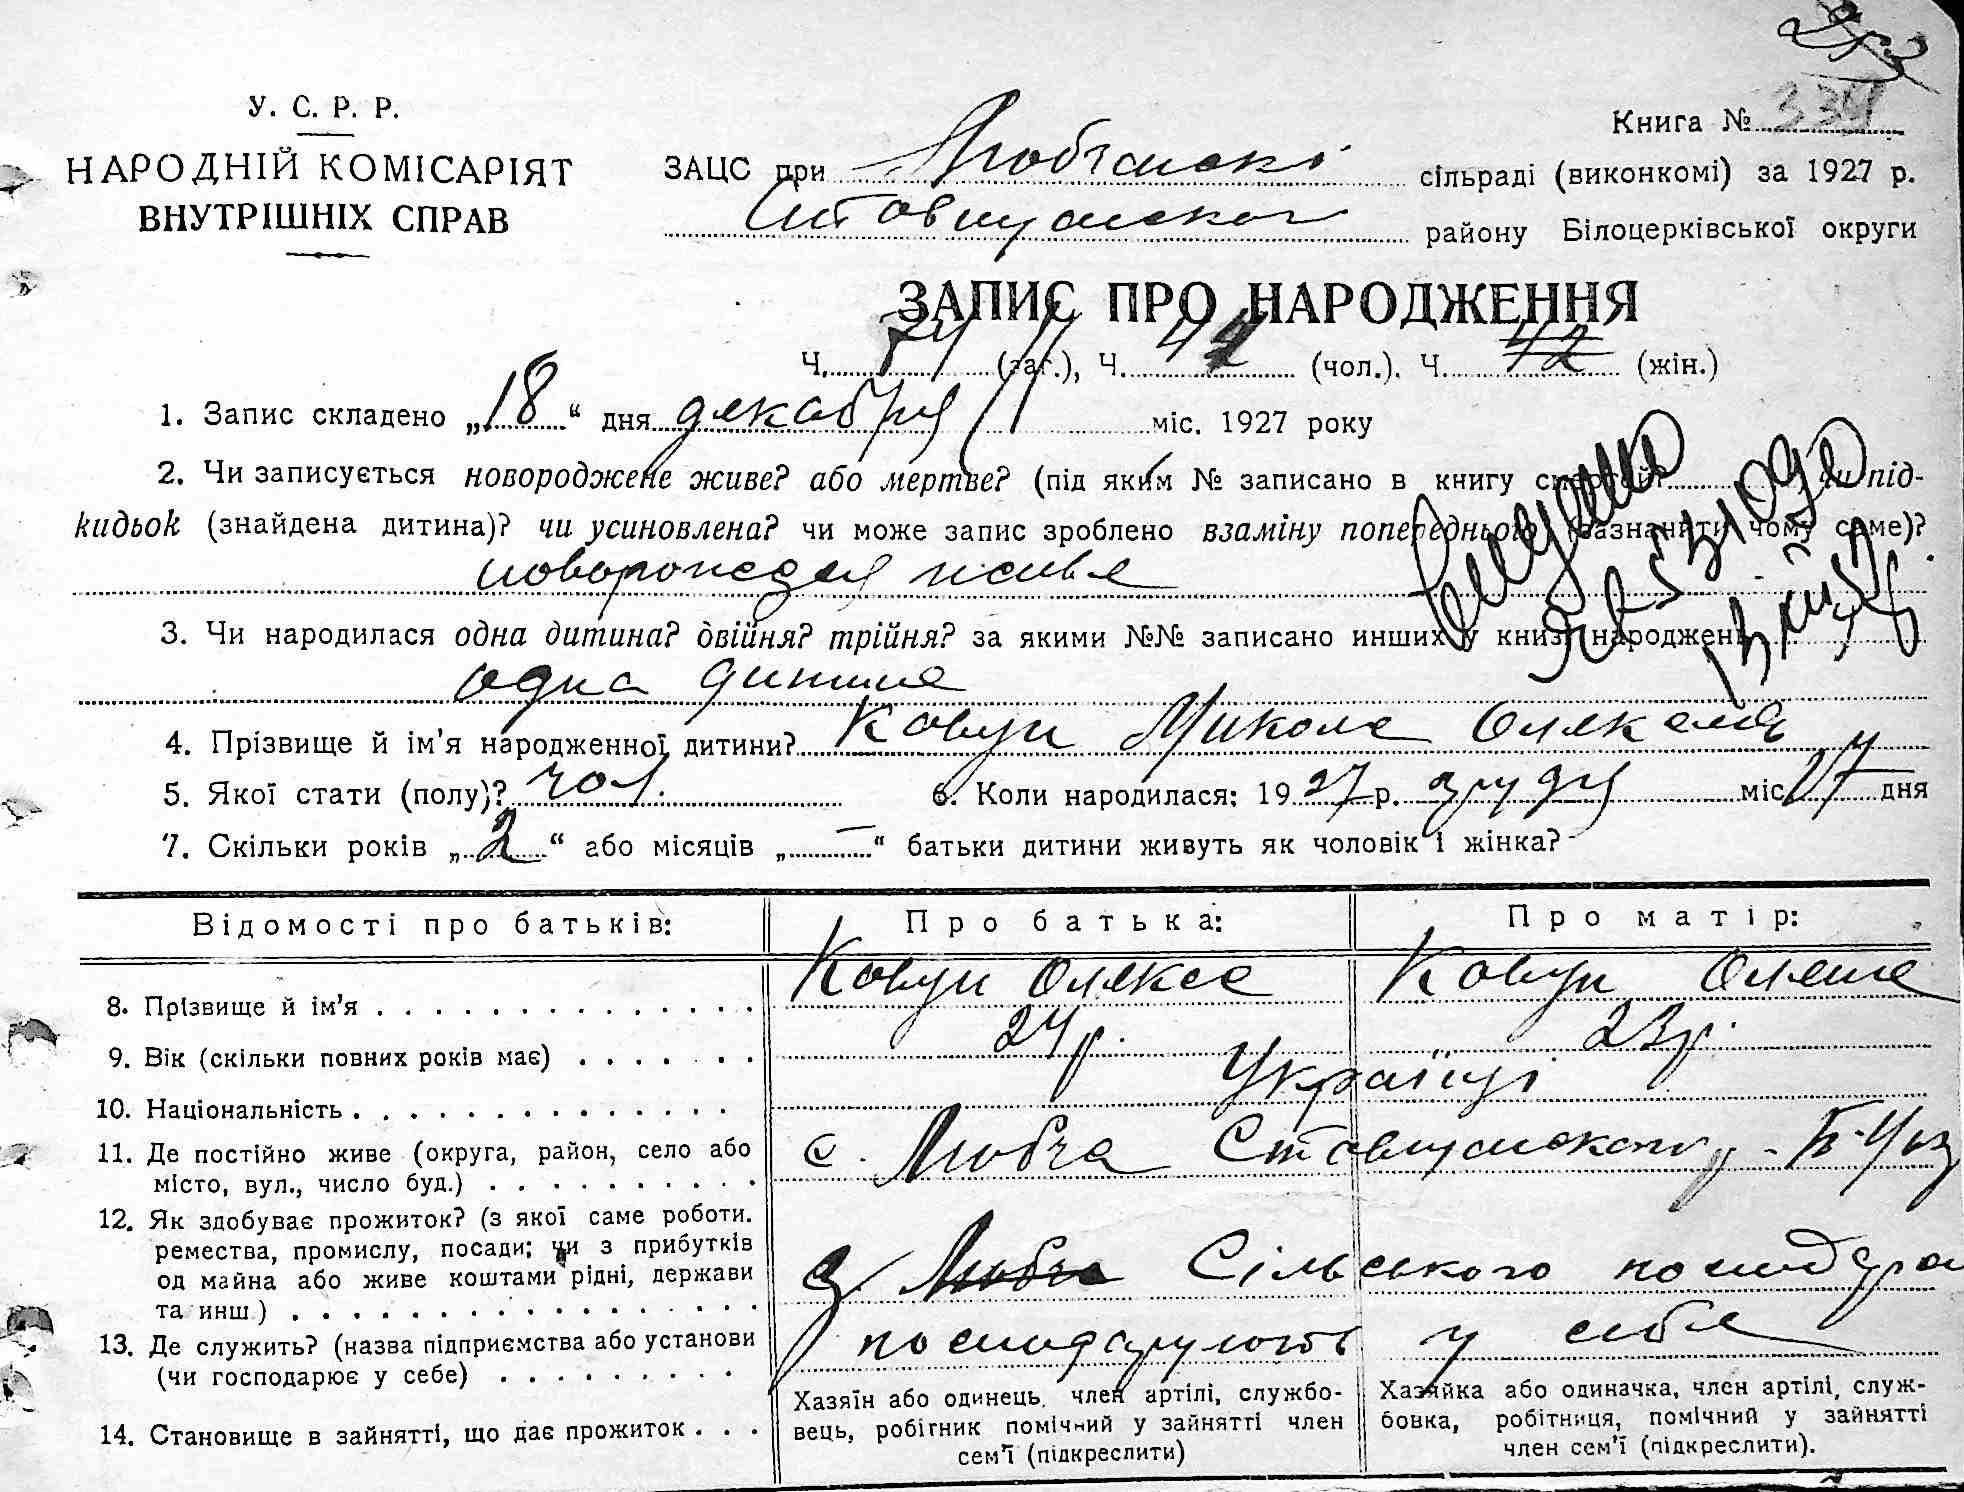 У. С. Р. Р.
НАРОДНІЙ КОМІСАРІЯТ
ВНУТРІШНІХ СПРАВ
Книга № 334
ЗАЦС при Любчанскі сільраді (виконкомі) за 1927 р.
Ставищанского району Білоцерківської округи
ЗАПИС ПРО НАРОДЖЕННЯ
Ч. 74 (заг.), Ч. 44 (чол.). Ч. 42 (жін.)
1. Запис складено „18“ дня декабря міс. 1927 року
2. Чи записується новороджене живе? або мертве? (під яким № записано в книгу смертей? чи під-
кидьок (знайдена дитина)? чи усиновлена? чи може запис зроблено взаміну попереднього (зазнанити чому саме)?
новорожедея живе
3. Чи народилася одна дитина? двійня? трійня? за якими №№ записано инших у книзі народжень
одна дитина
4. Прізвище й ім'я народженної дитини? Ковун Микола Олекса
5. Якої стати (полу)? чол. 6. Коли народилася: 1927 р. грудня міс 17 дня
7. Скільки років „2“ або місяців „—“ батьки дитини живуть як чоловік і жінка?
Відомості про батьків: Про батька: Про матір:
8. Прізвище й ім'я Ковун Олекса Ковун Олена
9. Вік (скільки повних років має) 24 р. 23 р.
10. Національність Українці
11. Де постійно живе (округа, район, село або
місто, вул., число буд.) с. Любча Ставищанского р. - Б-Ц
12. Як здобуває прожиток? (з якої саме роботи.
ремества, промислу, посади; чи з прибутків
од майна або живе коштами рідні, держави
та инш.) з Любча Сільського господара
13. Де служить? (назва підприємства або установи
(чи господарює у себе) господарують у себе
14. Становище в зайнятті, що дає прожиток
Хазяїн або одинець, член артілі, службо-
вець, робітник помічний у зайнятті член
сем'ї (підкреслити)
Хазяйка або одиначка, член артілі, служ-
бовка, робітниця, помічний у зайнятті
член сем'ї (підкреслити).